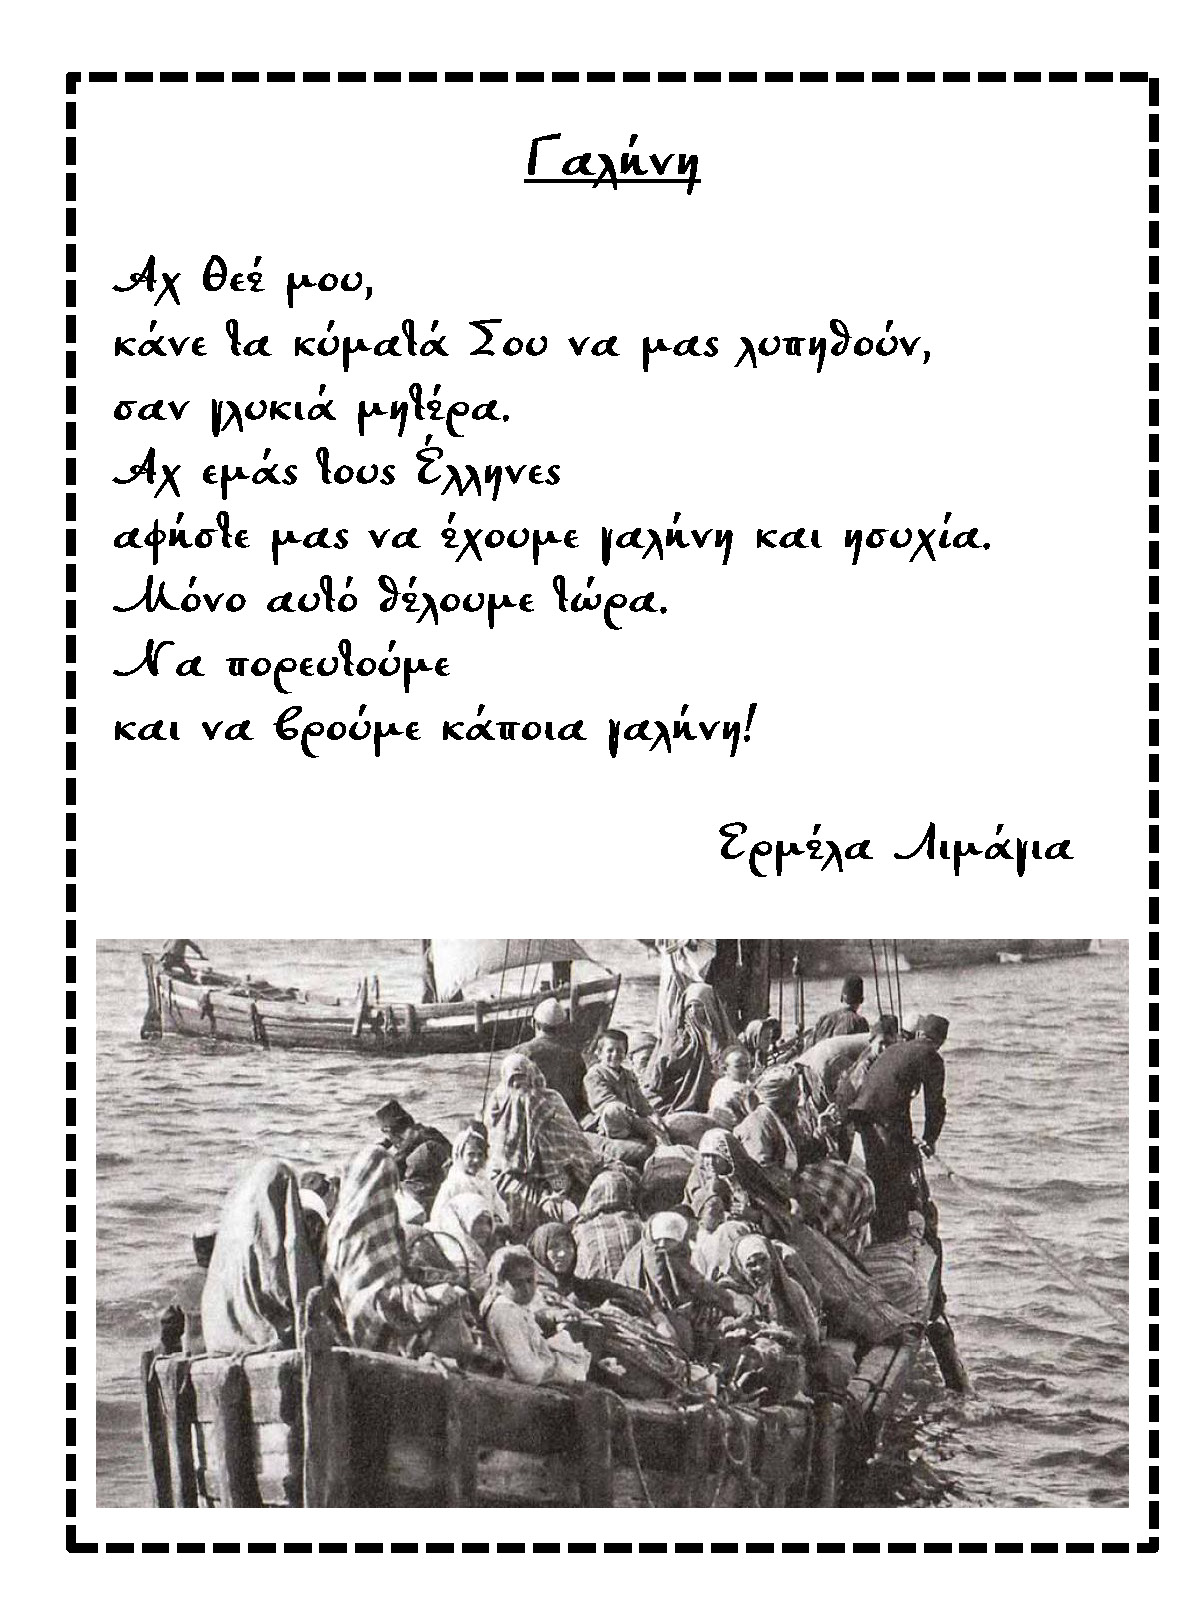 Γαλήνη
Αχ θεέ μου,
κάνε τα κύματά Σου να μας λυπηθούν,
σαν γλυκιά μητέρα.
Αχ εμάς τους Έλληνες
αφήστε μας να έχουμε γαλήνη και ησυχία.
Μόνο αυτό θέλουμε τώρα.
Να πορευτούμε
και να βρούμε κάποια γαλήνη!
Ερμέλα Λιμάγια